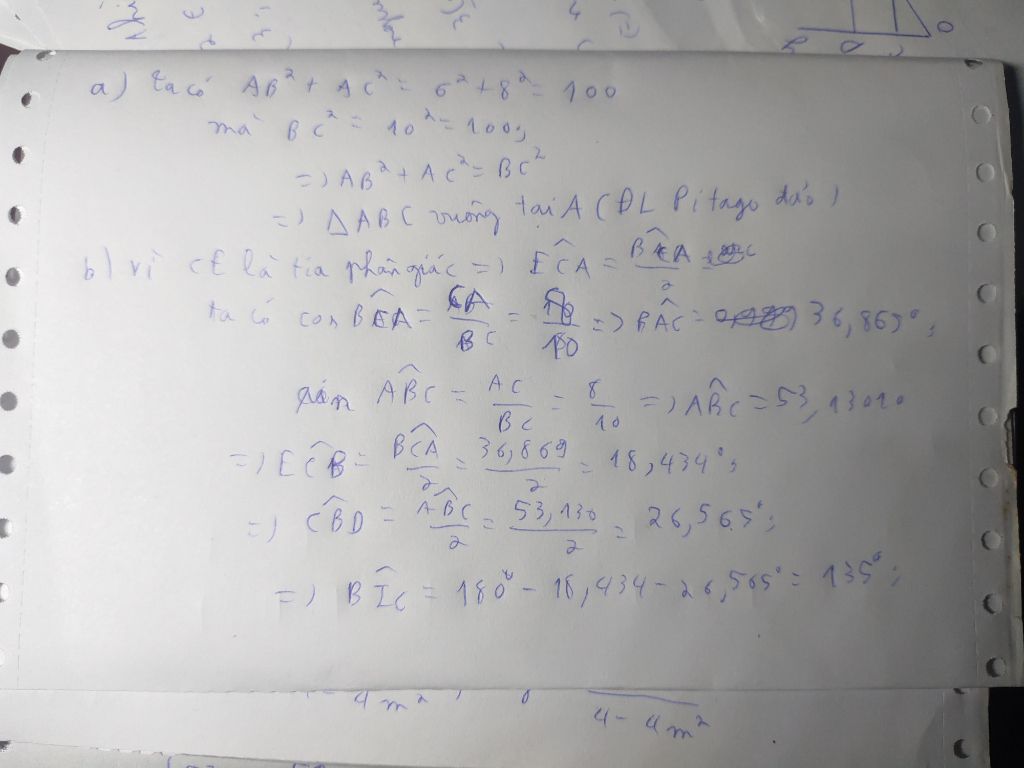 a) ta có AB² + AC² = 6² + 8² = 100
mà BC² = 10² = 100;
=> AB² + AC² = BC²
=> ΔABC vuông tại A (ĐL Pitago đảo)
b) vì CE là tia phân giác => ÊCA = BCA / 2
ta có cos BCA = CA / BC = / 10 => BÂC = 36,869°;
ABC = AC / BC = 8 / 10 => ABC = 53,1301°
=> ECB = BCA / 2 = 36,869 / 2 = 18,434°;
=> CBD = ABC / 2 = 53,130 / 2 = 26,565°;
=> BIC = 180° - 18,434 - 26,565° = 135°;
4m²
4 - 4m²